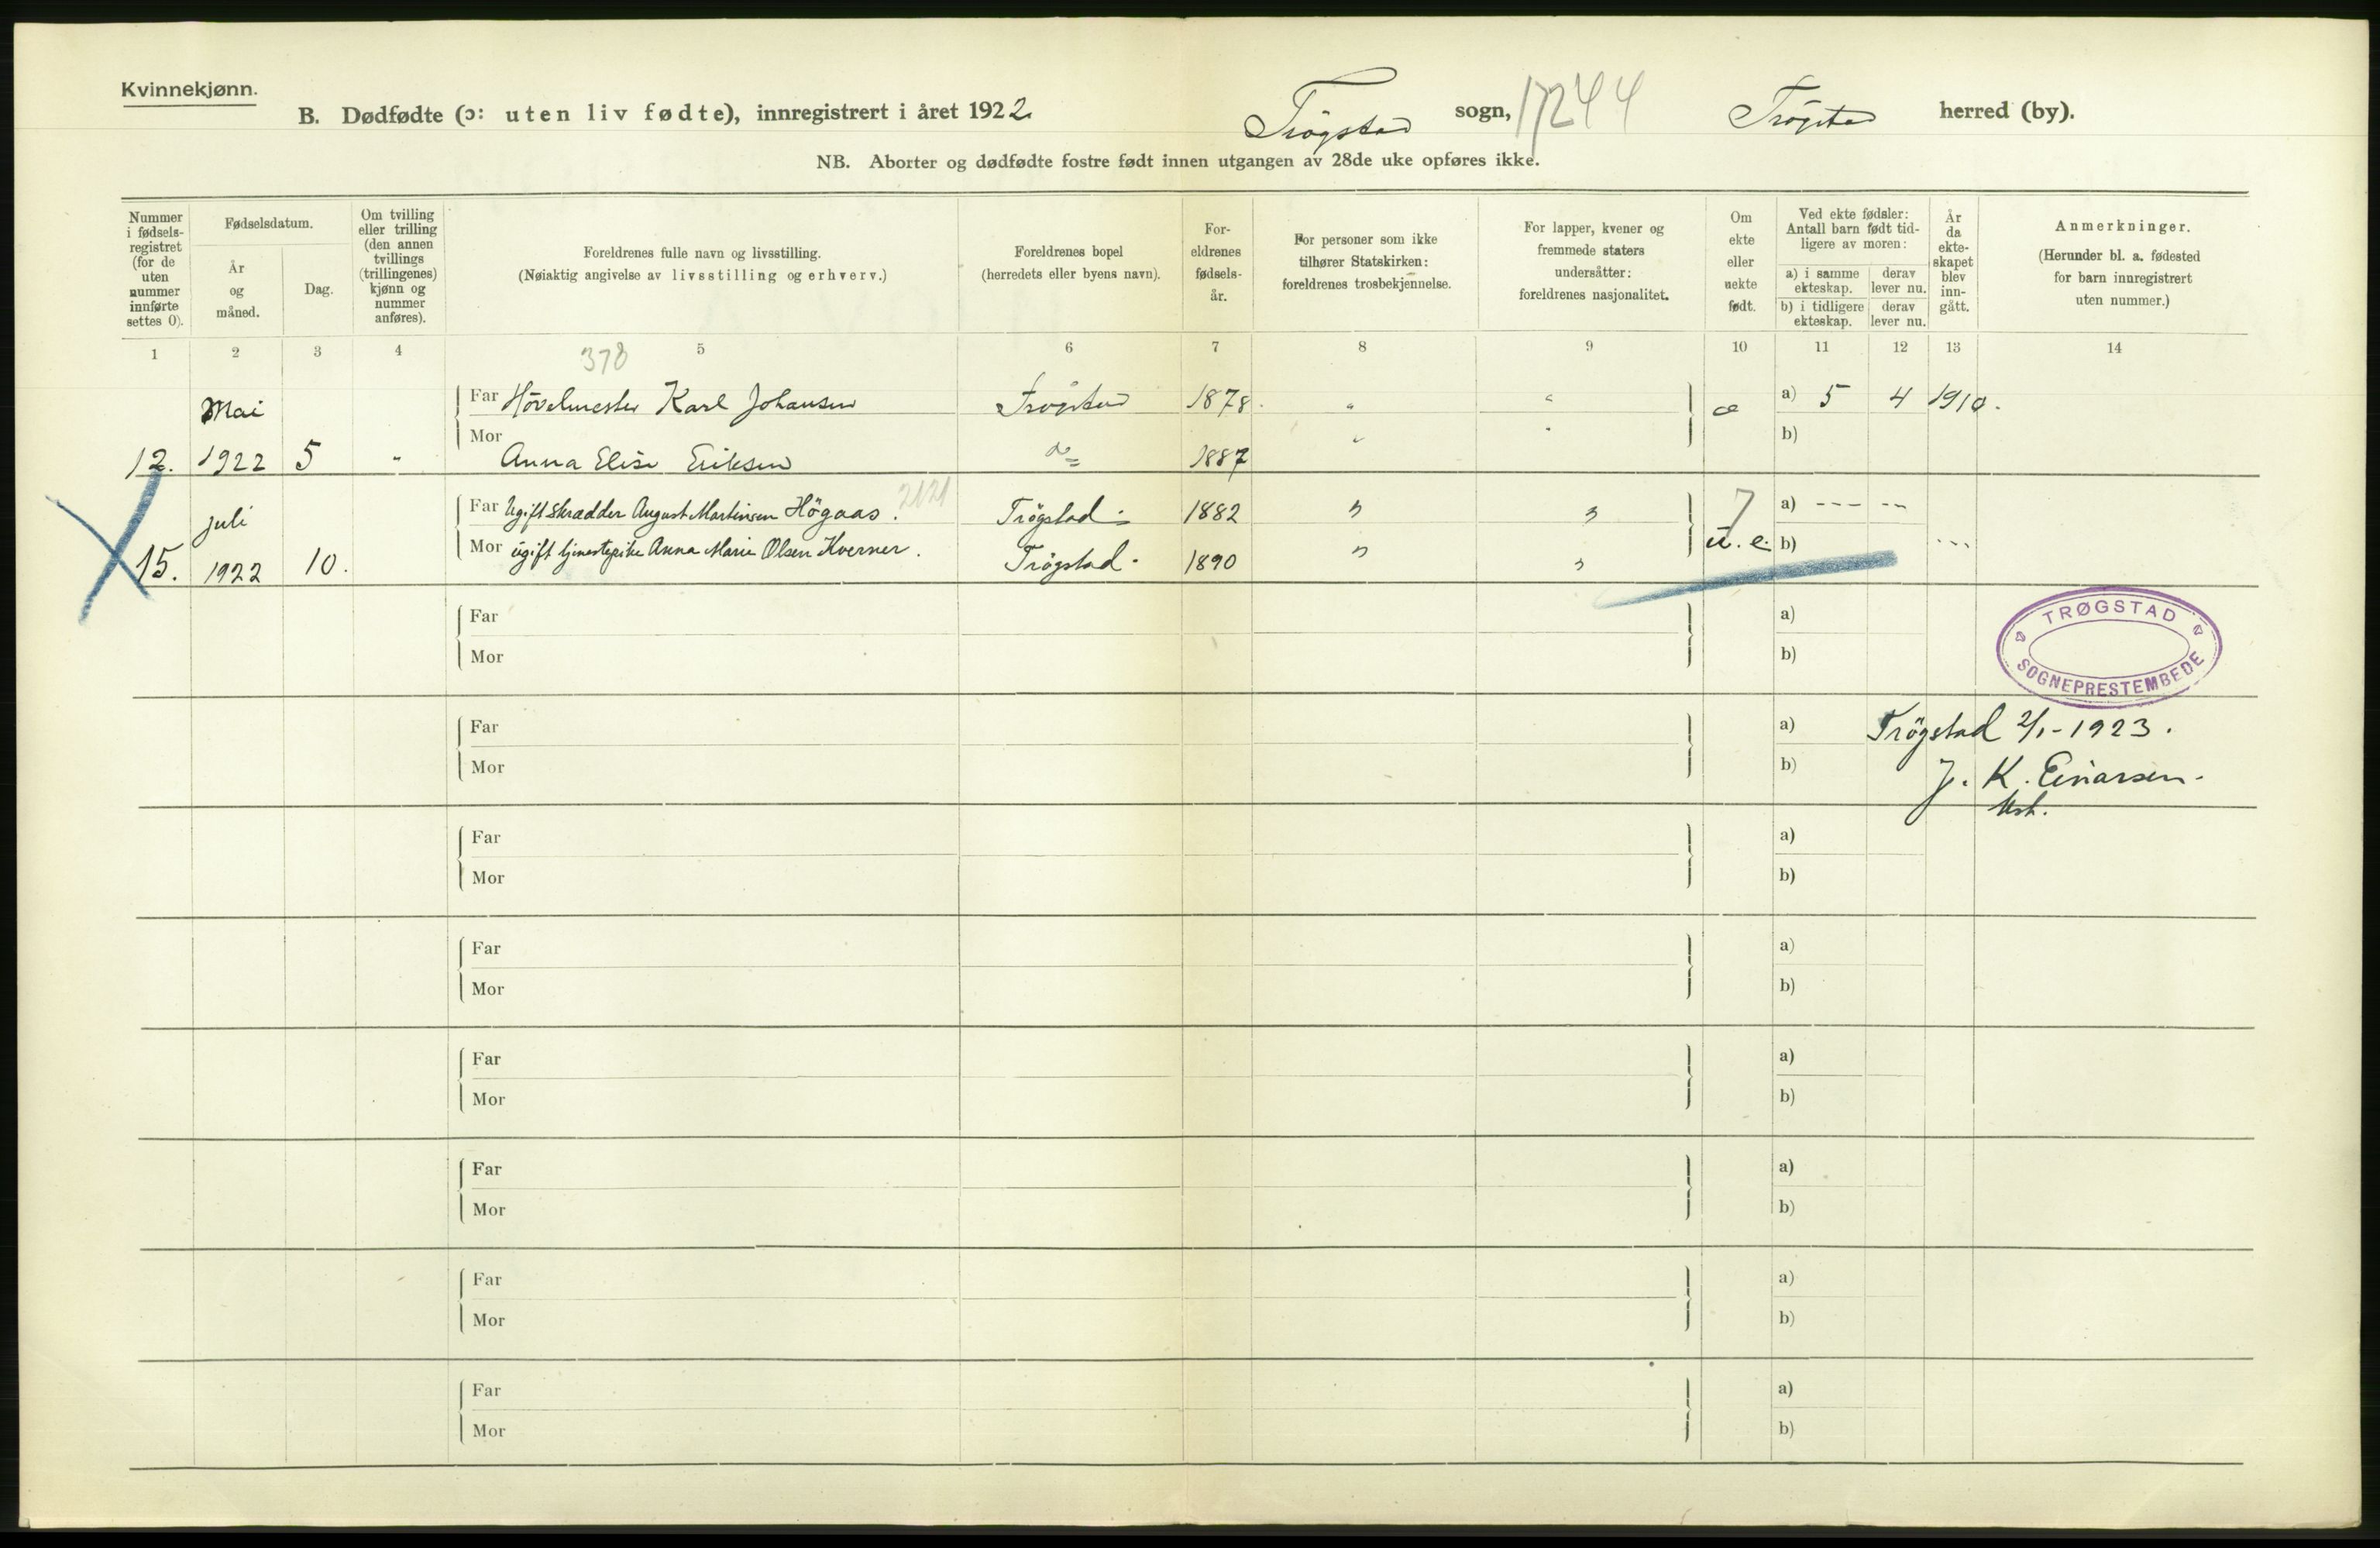 Kvinnekjønn.
B. Dødfødte (ɔ: uten liv fødte), innregistrert i året 1922 Trögstad sogn, 17244 Trögstad herred (by).
NB. Aborter og dødfødte fostre født innen utgangen av 28de uke opføres ikke.
Nummer i fødsels-registret (for de uten nummer innførte settes 0).
Fødselsdatum.
År og måned.
Dag.
Om tvilling eller trilling (den annen tvillings (trillingenes) kjønn og nummer anføres).
Foreldrenes fulle navn og livsstilling.
(Nøiaktig angivelse av livsstilling og erhverv.)
Foreldrenes bopel
(herredets eller byens navn).
For-eldrenes fødsels-år.
For personer som ikke tilhører Statskirken: foreldrenes trosbekjennelse.
For lapper, kvener og fremmede staters undersåtter: foreldrenes nasjonalitet.
Om ekte eller uekte født.
Ved ekte fødsler: Antall barn født tid-ligere av moren:
a) i samme ekteskap.
derav lever nu.
b) i tidligere ekteskap.
derav lever nu.
År da ekte-skapet blev inn-gått.
Anmerkninger.
(Herunder bl. a. fødested for barn innregistrert uten nummer.)
1 2 3 4 5 6 7 8 9 10 11 12 13 14
378
Mai Far Hövelmester Karl Johansen Trögstad 1878. " " e a) 5 4 1910.
12. 1922 5 " Mor Anna Elise Eriksen do 1887 " " b)
juli Far Ugift Skrædder August Martinsen Högaas. 2121 Trögstad 1882 " " 7 a) --- ---
15. 1922 10. Mor ugift tjenestepike Anna Marie Olsen Kverner. Trögstad. 1890 " " u. e. b) ---
Far a)
Mor b)
TRØGSTAD
SOGNEPRESTEMBEDE
Far a) Trögstad 2/1-1923.
Mor b) J. K. Einarsen.
Far a)
Mor b)
Far a)
Mor b)
Far a)
Mor b)
Far a)
Mor b)
Far a)
Mor b)
Far a)
Mor b)